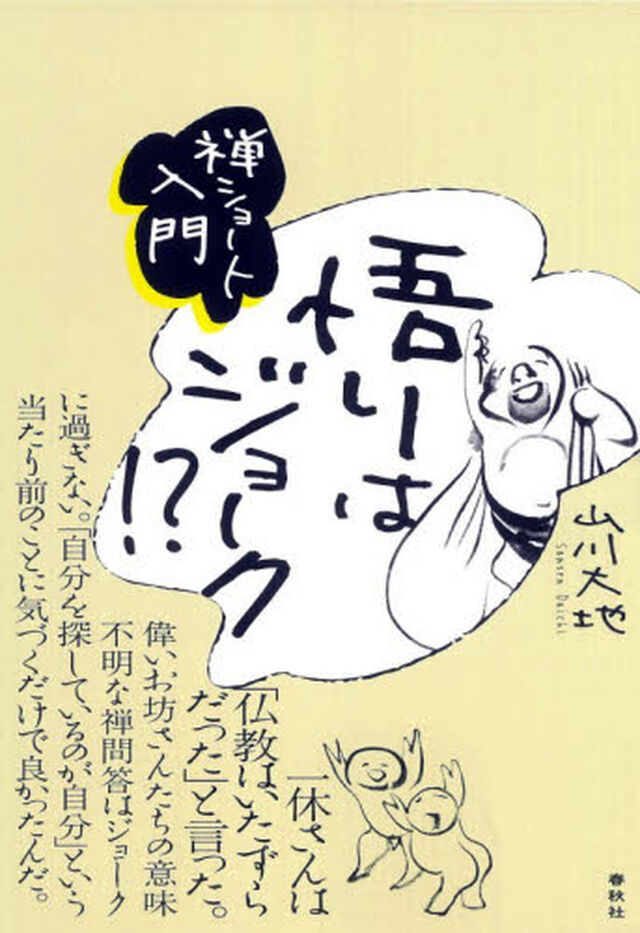 禅ショート
入門
悟りは
ジョーク
!?
山川大地
Sansen Daichi
一休さんは
「仏教は、いたずら
だった」と言った。
偉いお坊さんたちの意味
不明な禅問答はジョーク
に過ぎない。「自分を探しているのが自分」という
当たり前のことに気づくだけで良かったんだ。
春秋社